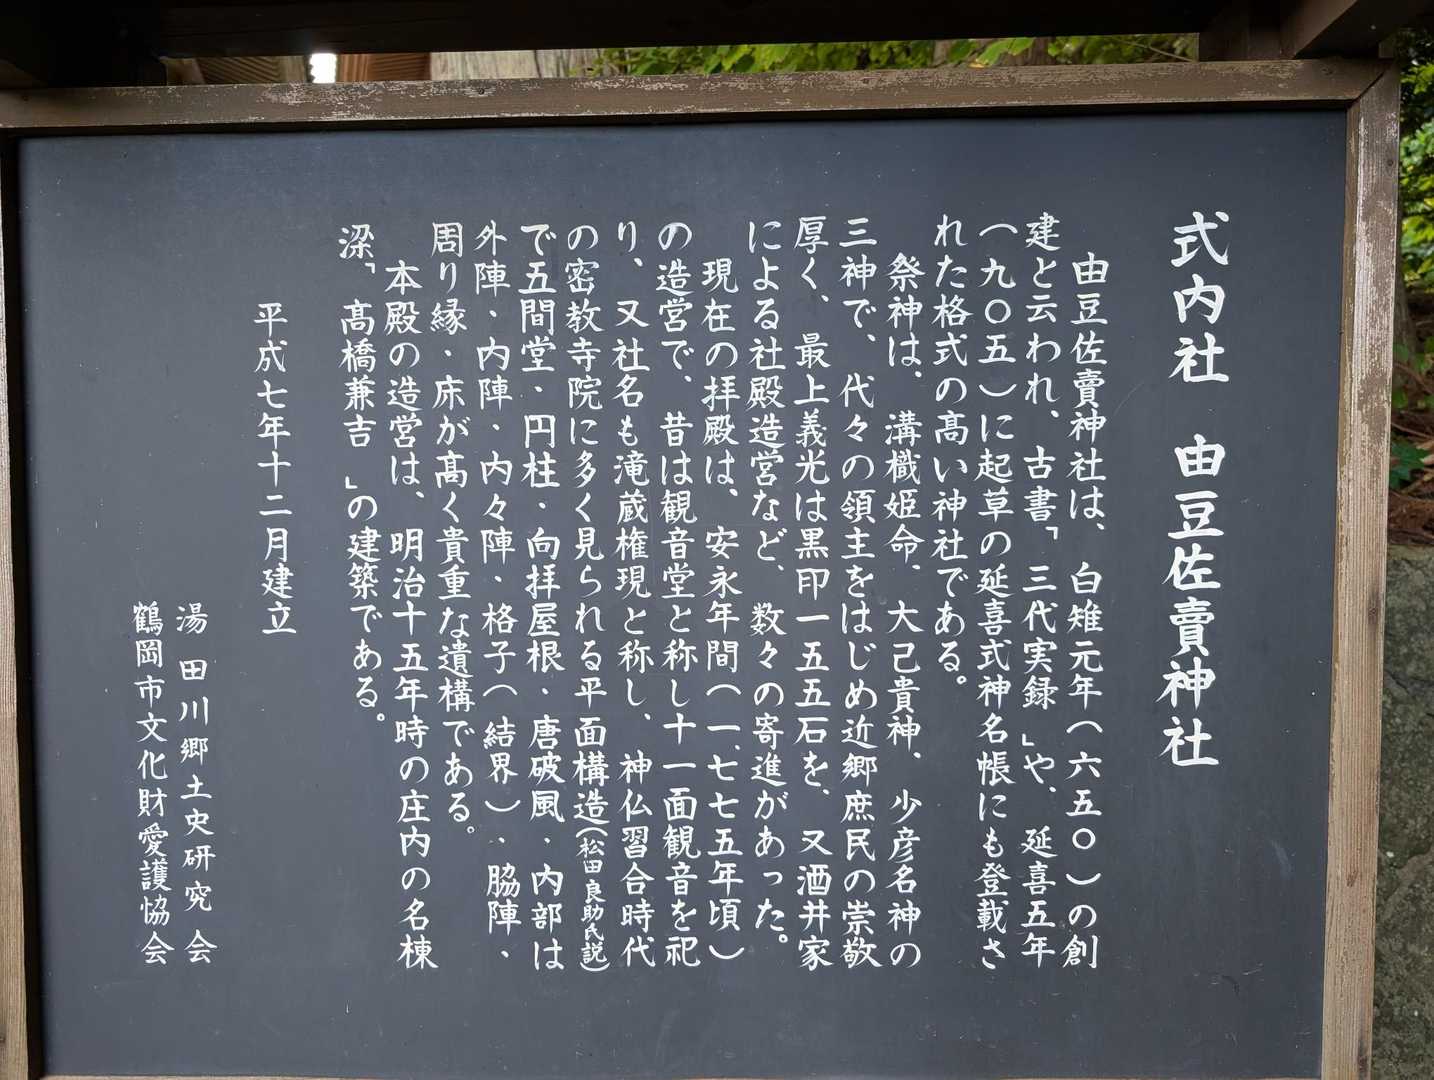 式内社 由豆佐賣神社
由豆佐賣神社は、白雉元年(六五〇)の創
建と云われ、古書「三代実録」や、延喜五年
(九〇五)に起草の延喜式神名帳にも登載さ
れた格式の髙い神社である。
祭神は、溝樴姫命、大己貴神、少彦名神の
三神で、代々の領主をはじめ近郷庶民の崇敬
厚く、最上義光は黒印一五五石を、又酒井家
による社殿造営など、数々の寄進があった。
現在の拝殿は、安永年間(一、七七五年頃)
の造営で、昔は観音堂と称し十一面観音を祀
り、又社名も滝蔵権現と称し、神仏習合時代
の密教寺院に多く見られる平面構造(松田良助氏説)
で五間堂・円柱・向拝屋根・唐破風・内部は
外陣・内陣・内々陣・格子(結界)・脇陣・
周り縁・床が髙く貴重な遺構である。
本殿の造営は、明治十五年時の庄内の名棟
梁「髙橋兼吉」の建築である。
平成七年十二月建立
湯田川郷土史研究会
鶴岡市文化財愛護協会